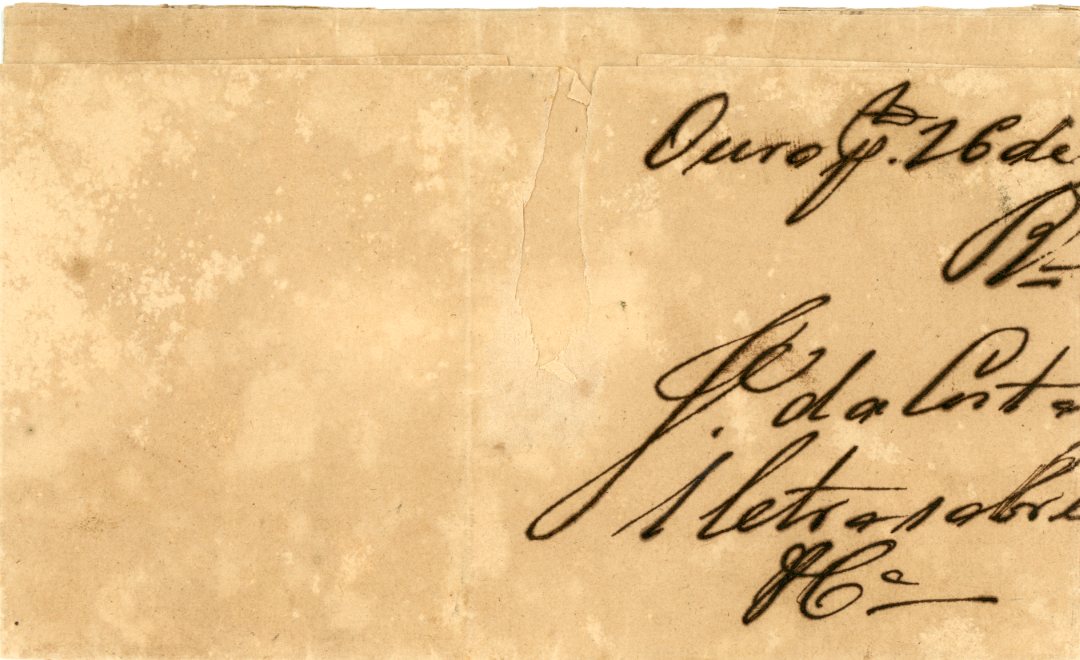 Ouro pto. 26 de
Ra
Je. da Costa
1 letra sobre